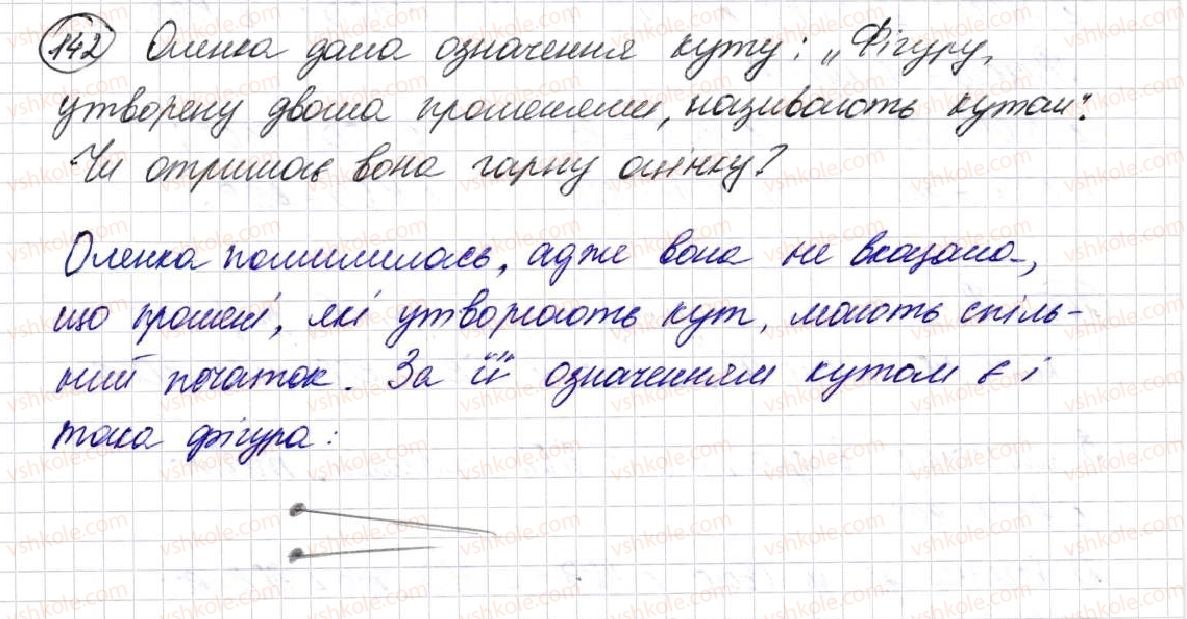 142 Оленка дала означення куту: „Фігуру,
утворену двома променями, називають кутом".
Чи отримає вона гарну оцінку?
Оленка помилилась, адже вона не вказала,
що промені, які утворюють кут, мають спіль-
ний початок. За її означенням кутом є і
така фігура: